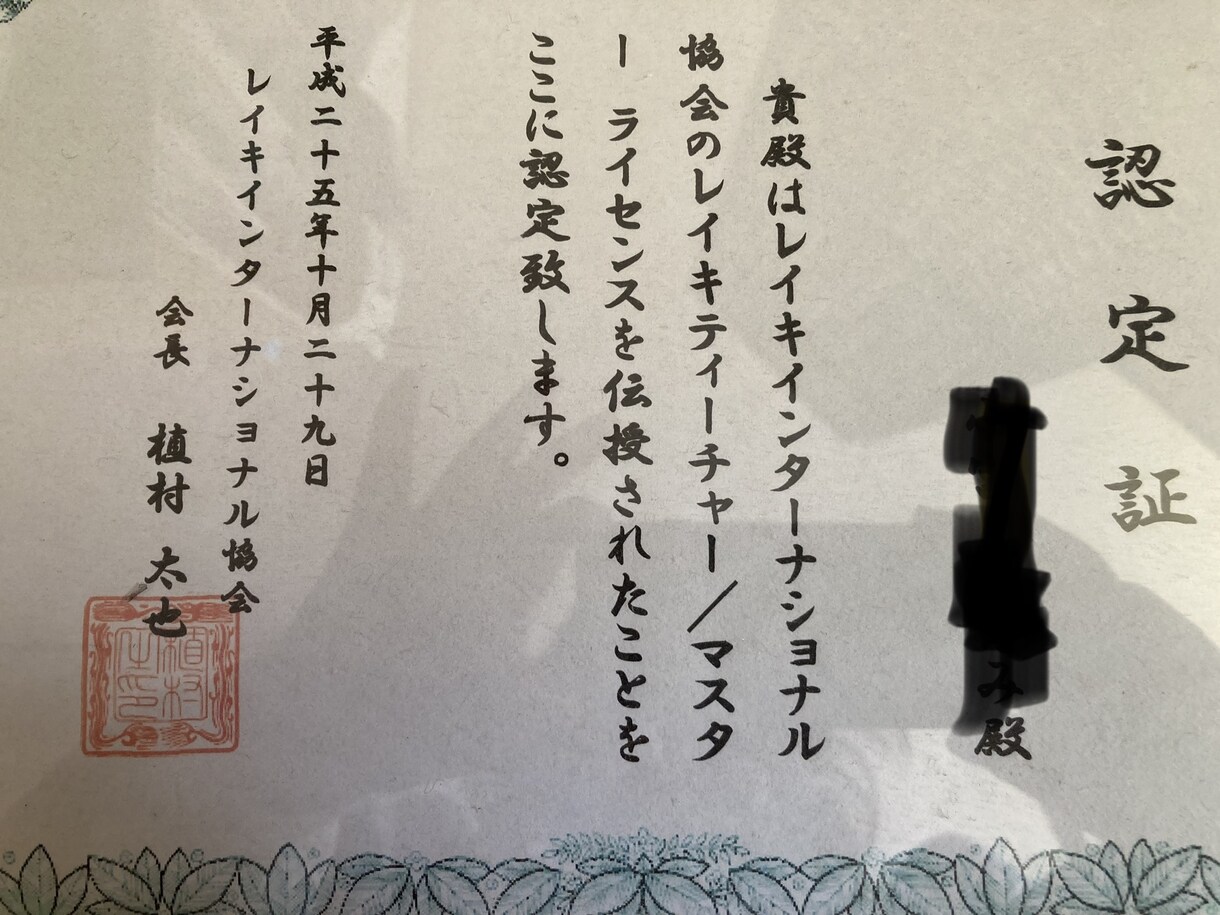 認定証
殿
貴殿はレイキインターナショナル
協会のレイキティーチャー／マスタ
ー ライセンスを伝授されたことを
ここに認定致します。
平成二十五年十月二十九日
レイキインターナショナル協会
会長 植村 太也
植村
之印